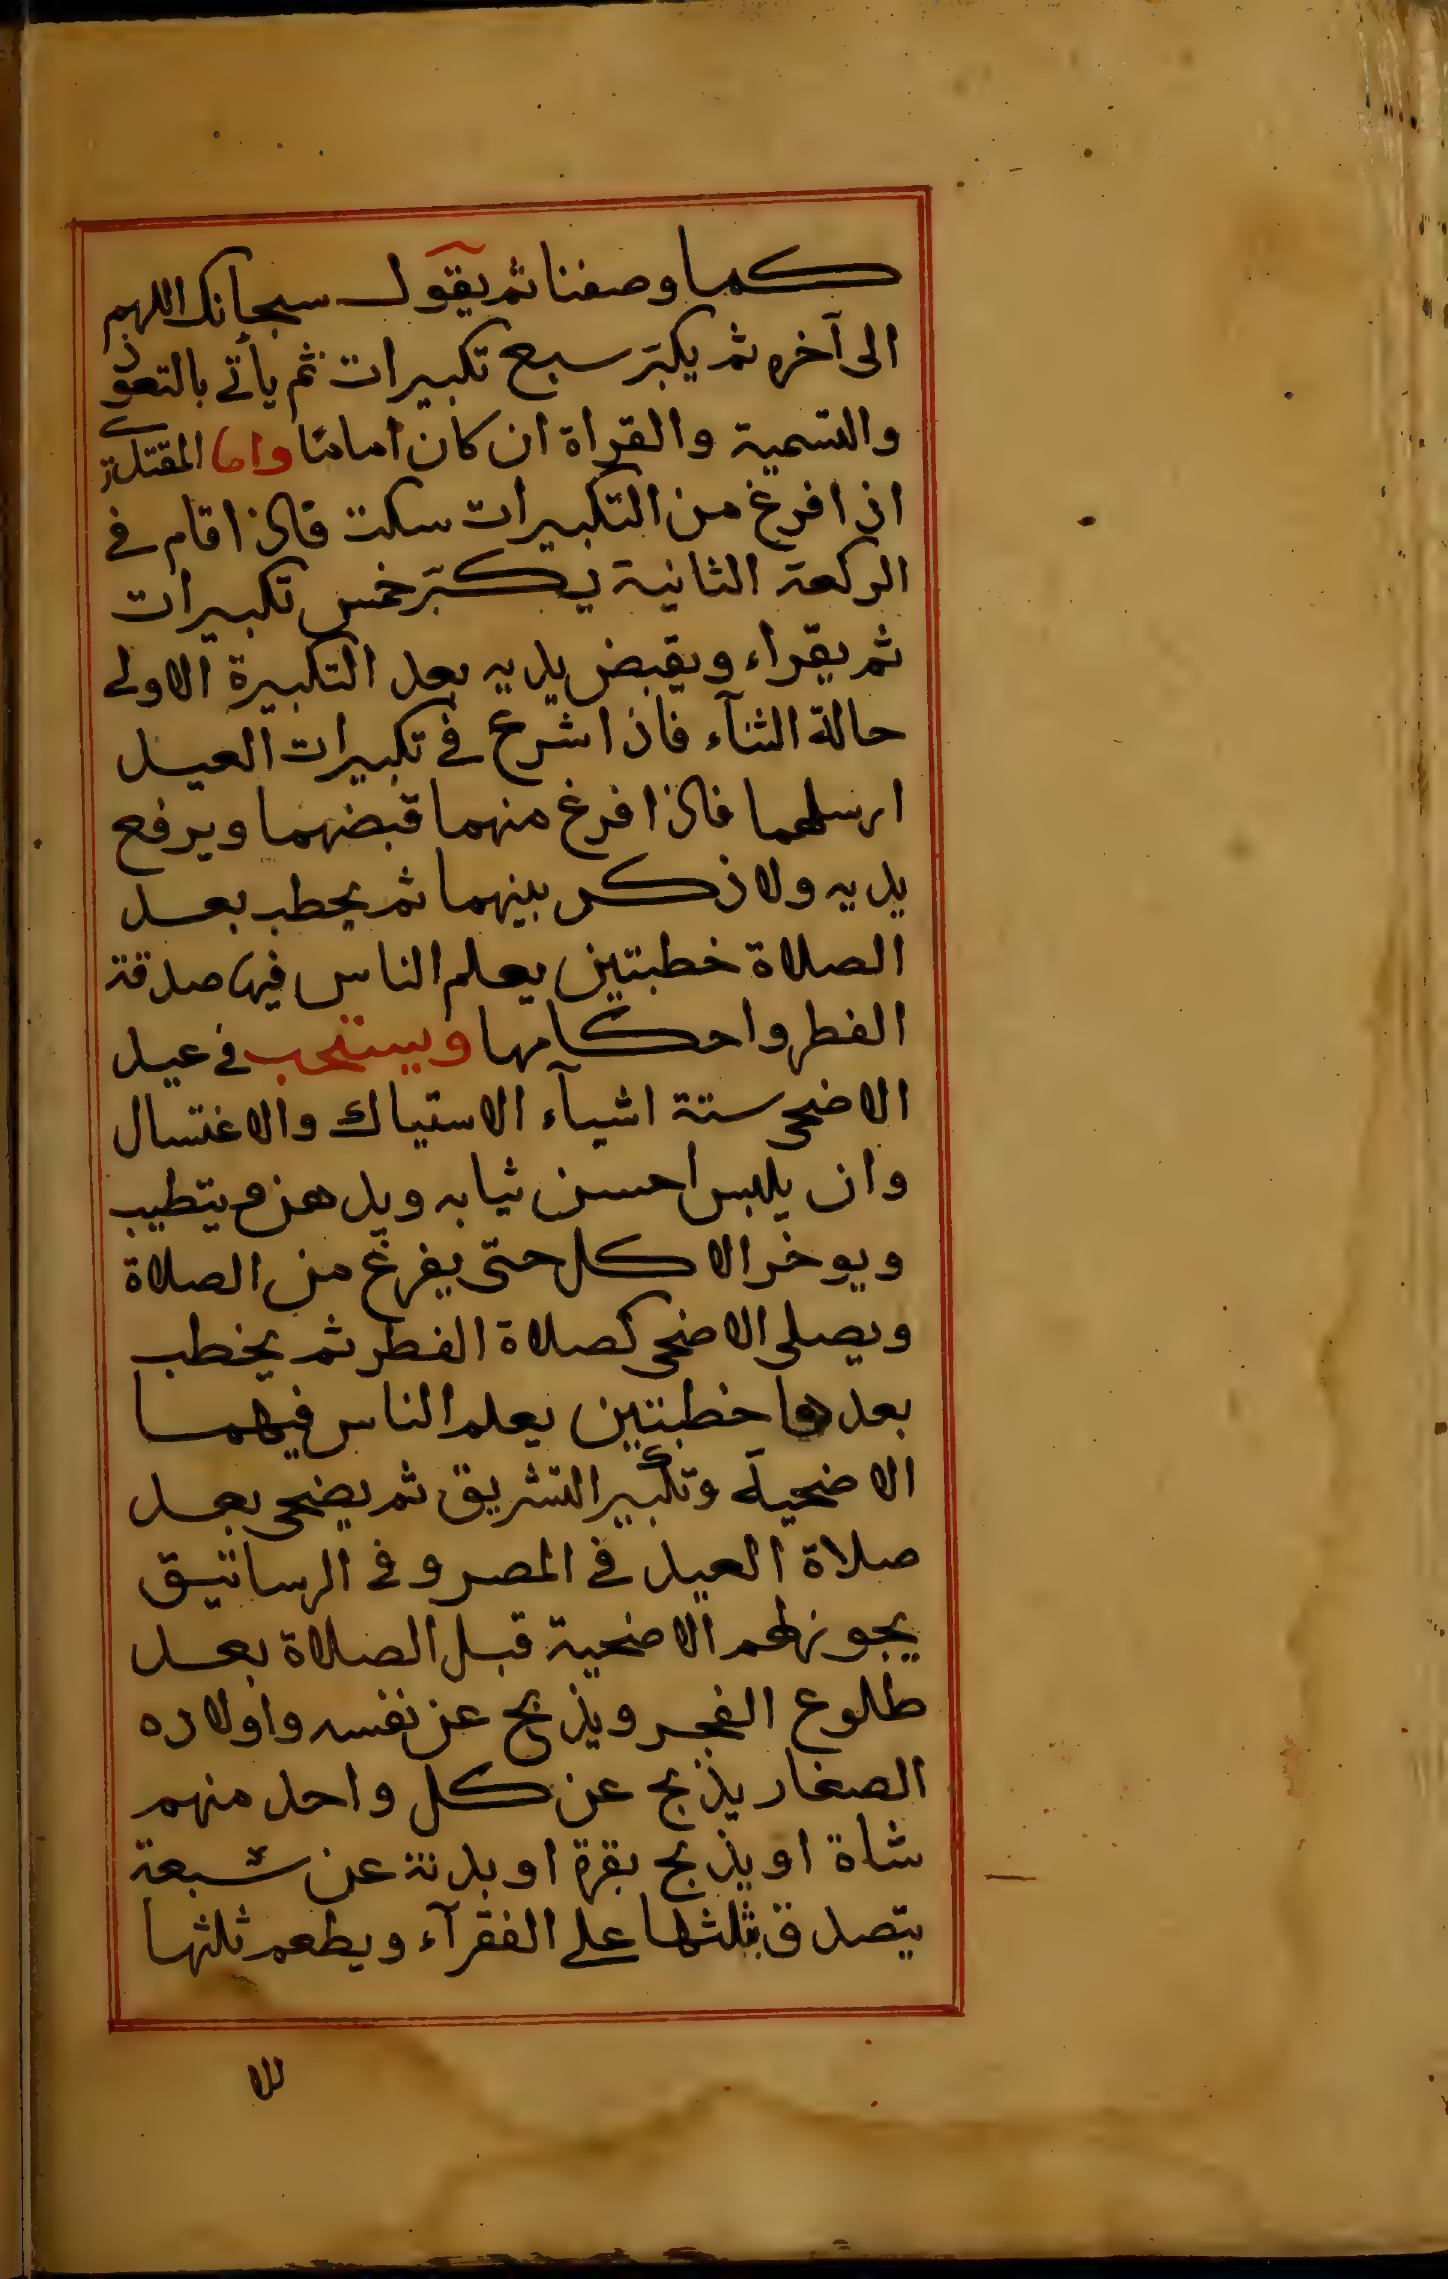 كما وصفنا ثم يقول سبحانك اللهم
الى آخره ثم يكبّر سبع تكبيرات ثم يأتي بالتعوذ
والتسمية والقراة ان كان امامًا واما المقتدي
اذا فرغ من التكبيرات سكت فاذا قام في
الركعة الثانية يكبّر خمس تكبيرات
ثم يقراء ويقبض يديه بعد التكبيرة الاولى
حالة الثنآء فاذا شرع في تكبيرات العيد
ارسلهما فاذا فرغ منهما قبضهما ويرفع
يديه ولا ذكر بينهما ثم يخطب بعد
الصلاة خطبتين يعلم الناس فيها صدقة
الفطر واحكامها ويستحب في عيد
الاضحى ستة اشيآء الاستياك والاغتسال
وان يلبس احسن ثيابه ويدهن ويتطيب
ويوخر الاكل حتى يفرغ من الصلاة
ويصلى الاضحى كصلاة الفطر ثم يخطب
بعدها خطبتين يعلم الناس فيهما
الاضحية وتكبير التشريق ثم يضحى بعد
صلاة العيد في المصر وفي الرساتيق
يجوز لهم الاضحية قبل الصلاة بعد
طلوع الفجر ويذبح عن نفسه واولاده
الصغار يذبح عن كل واحد منهم
شاة او يذبح بقرة او بدنة عن سبعة
يتصدق بثلثها على الفقرآء ويطعم ثلثها